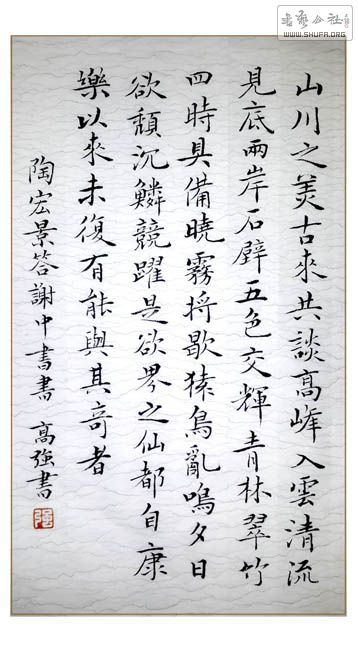 书艺公社
WWW.SHUFA.ORG
山川之美古來共談高峰入雲清流
見底兩岸石壁五色交輝青林翠竹
四時具備曉霧將歇猿鳥亂鳴夕日
欲頹沉鱗競躍是欲界之仙都自康
樂以來未復有能與其奇者
陶宏景答謝中書書 高強書